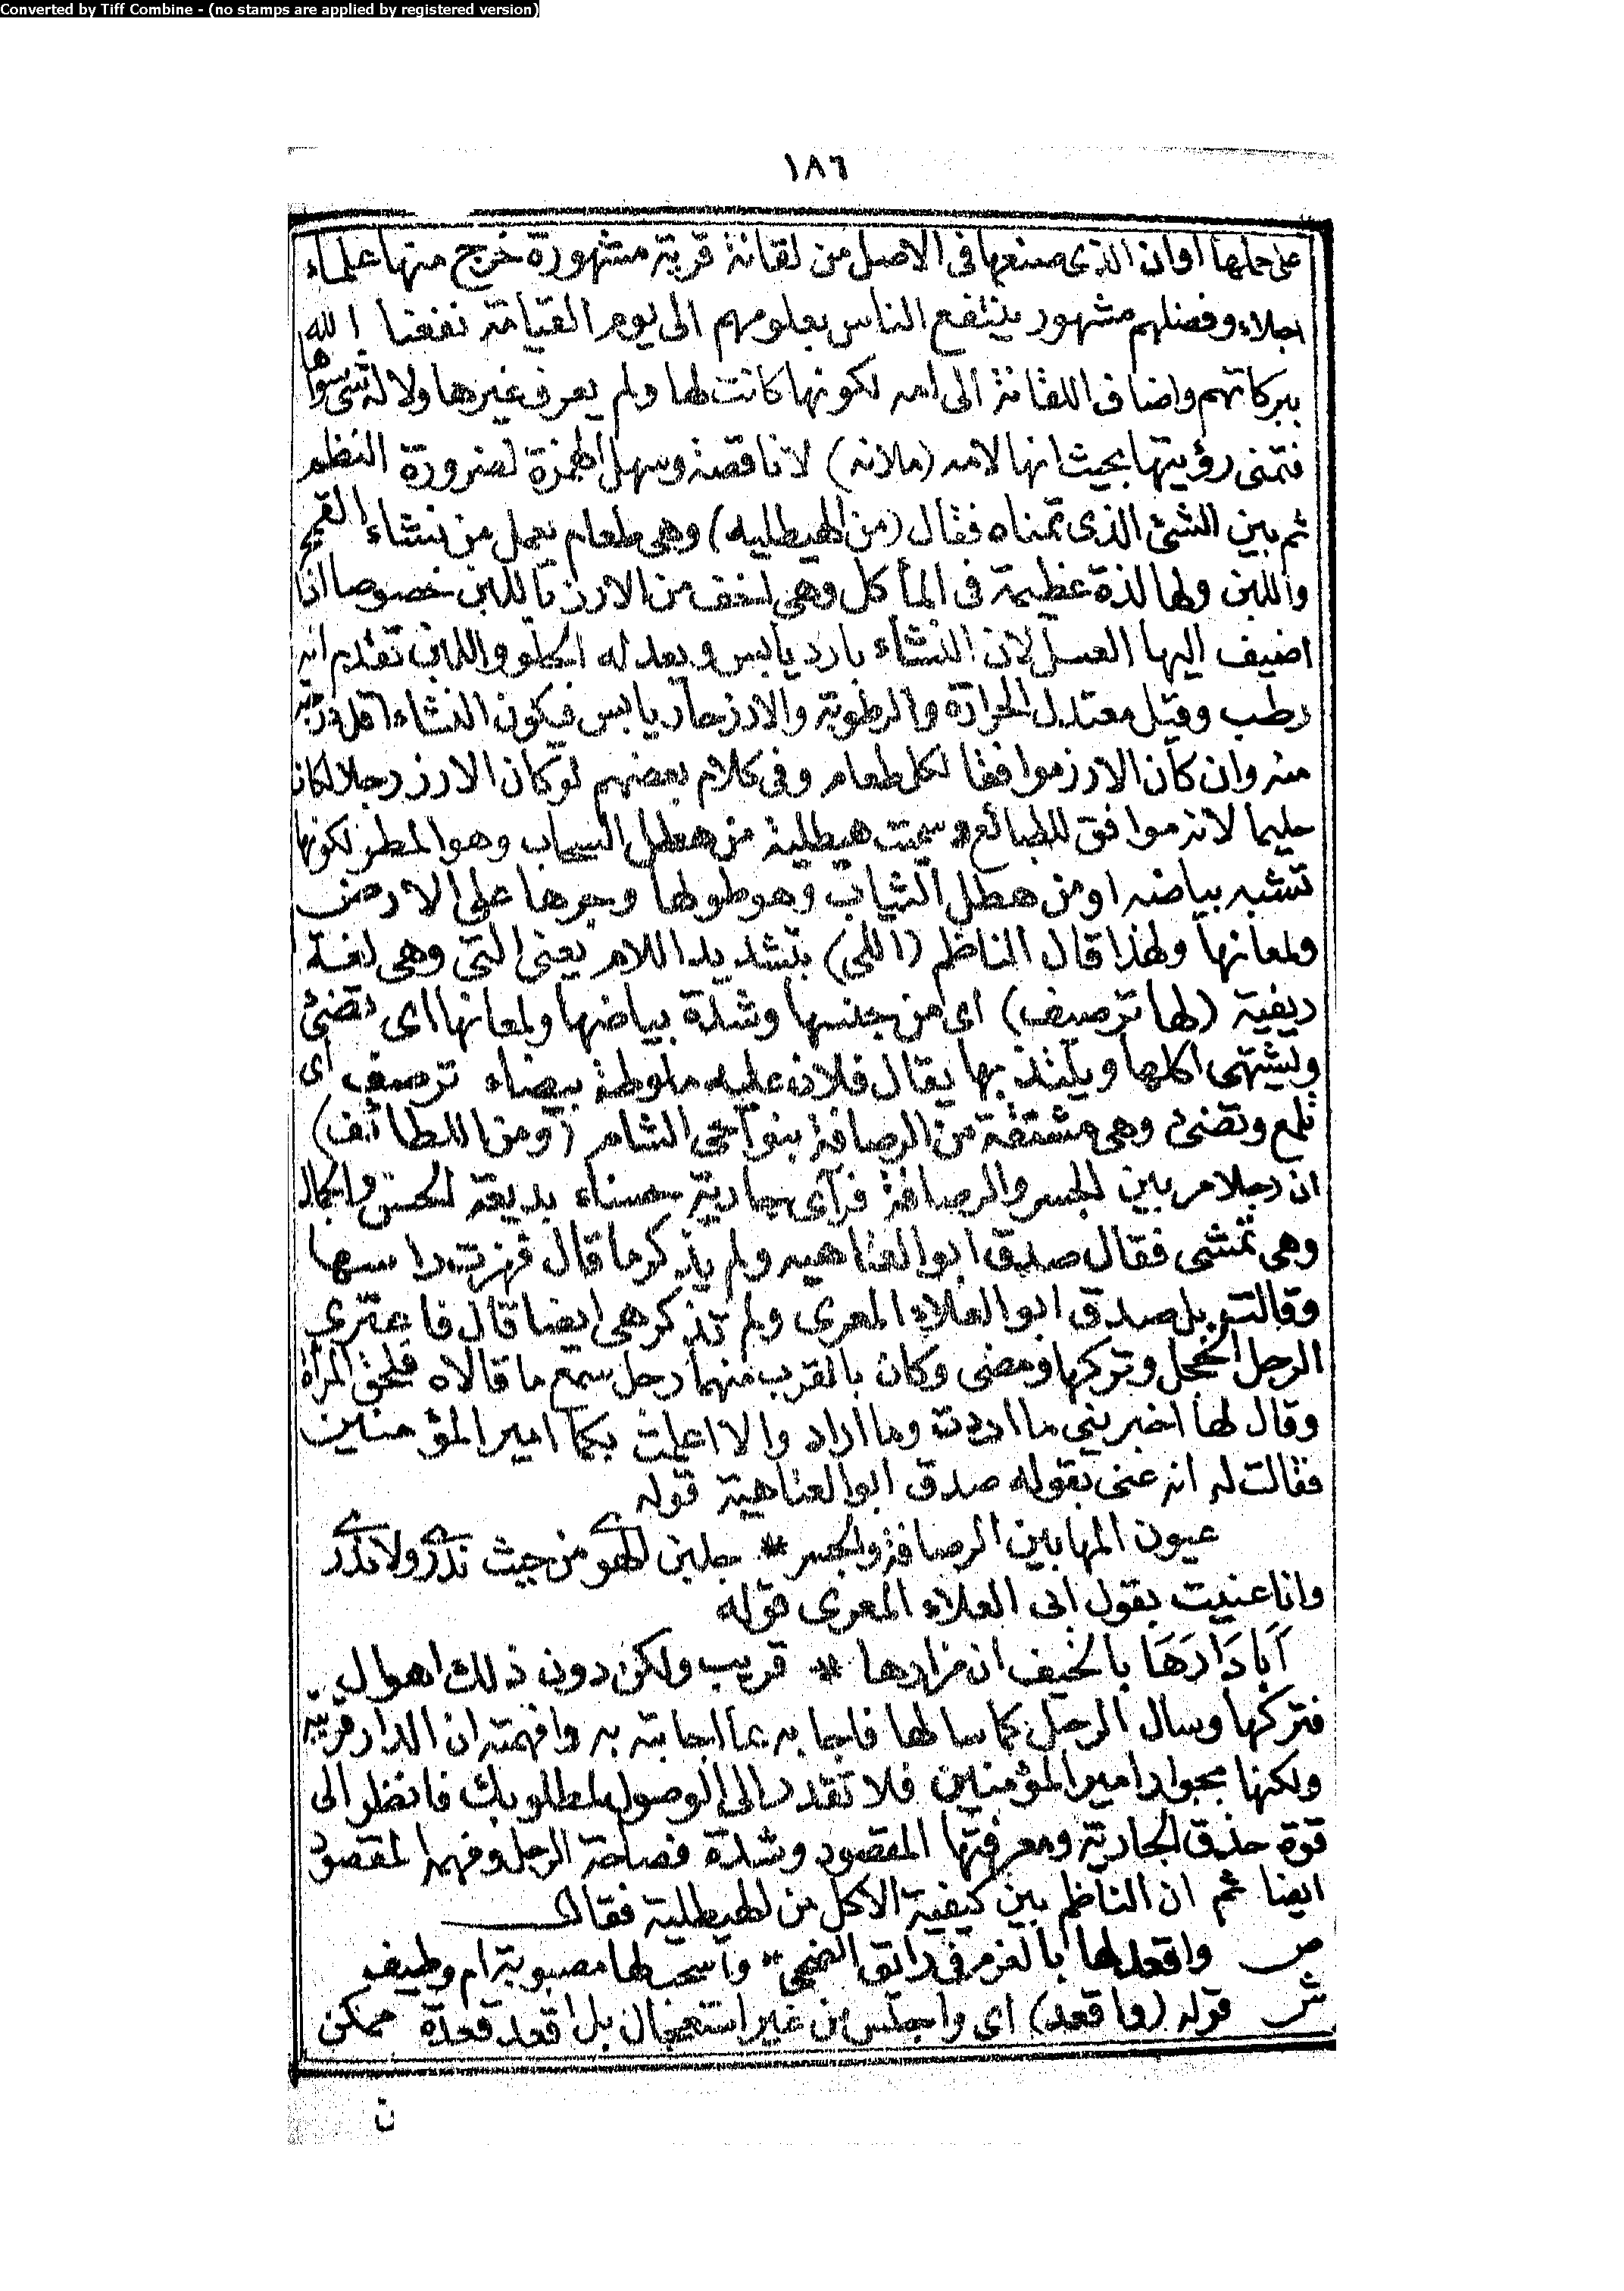 Converted by Tiff Combine - (no stamps are applied by registered version)
١٨٦
على حملها اوان الذى صنعها فى الاصل من لقانة قرية مشهورة خرج منها علماء
اجلاء وفضلهم مشهور ينتفع الناس بعلومهم الى يوم القيامة نفعنا الله
ببركاتهم واضاف اللقانة الى امه لكونها كانت لها ولم يعرف غيرها ولا له شىء سواها
فتمنى رؤيتها بحيث انها لامه (ملانه) لا ناقصة وسهل الهمزة لضرورة النظم
ثم بين الشئ الذى تمناه فقال (من الهيطليه) وهى طعام يعمل من نشاء القمح
واللبن ولها لذة عظيمة فى المأكل وهى اخف من الارز باللبن خصوصا اذا
اضيف اليها العسل لان النشاء بارد يابس ويعدله الحلو واللبن تقدم انه
رطب وقيل معتدل الحرارة والرطوبة والارز حار يابس فيكون النشاء اقل درجة
منه وان كان الارز موافقا لكل طعام وفى كلام بعضهم لو كان الارز رجلا لكان
حليما لانه موافق للطبائع وسميت هيطلية من هطل السحاب وهو المطر لكونها
تشبه بياضه او من هطل الثياب وهو طولها وجرها على الارض
ولمعانها ولهذا قال الناظم (اللى) بتشديد اللام يعنى التى وهى لغة
ريفية (لها ترصيف) اى من جنسها وشدة بياضها ولمعانها اى تضئ
ويشتهى اكلها ويلتذ بها يقال فلان عليه ملوطة بيضاء ترصف اى
تلمع وتضئ وهى مشتقة من الرصافة بنواحى الشام (ومن اللطائف)
ان رجلا مر بين الجسر والرصافة فرآى جارية حسناء بديعة الحسن والجمال
وهى تمشى فقال صدق ابو العتاهيه ولم يذكر ما قال فهزت راسها
وقالت بل صدق ابو العلاء المعرى ولم تذكر هى ايضا قال فاعترى
الرجل الخجل وتركها ومضى وكان بالقرب منهما رجل سمع ما قالاه فلحق المرأة
وقال لها اخبرينى ما اردت وما اراد والا اعلمت بكما امير المؤمنين
فقالت له انه عنى بقوله صدق ابو العتاهية قوله
عيون المها بين الرصافة والجسر * جلبن الهوى من حيث ندرى ولا ندرى
وانا عنيت بقول ابى العلاء المعرى قوله
اَيَا دَارَهَا بالخيف ان مزارها * قريب ولكن دون ذلك اهوال
فتركها وسال الرجل كما سالها فاجابه بما اجابته به وافهمته ان الدار قريبة
ولكنها بجوار امير المؤمنين فلا تقدر الى الوصول لمطلوبك فانظر الى
قوة حذق الجارية ومعرفتها المقصود وشدة فصاحة الرجل وفهمه المقصود
ايضا ثم ان الناظم بين كيفية الاكل من الهيطلية فقال
ص واقعد لها بالعزم فى رائق الضحى * واسحب لها مصبوبة ام وطيف
ش قوله (واقعد) اى واجلس من غير استعجال بل اقعد قعدة ممكن
ن